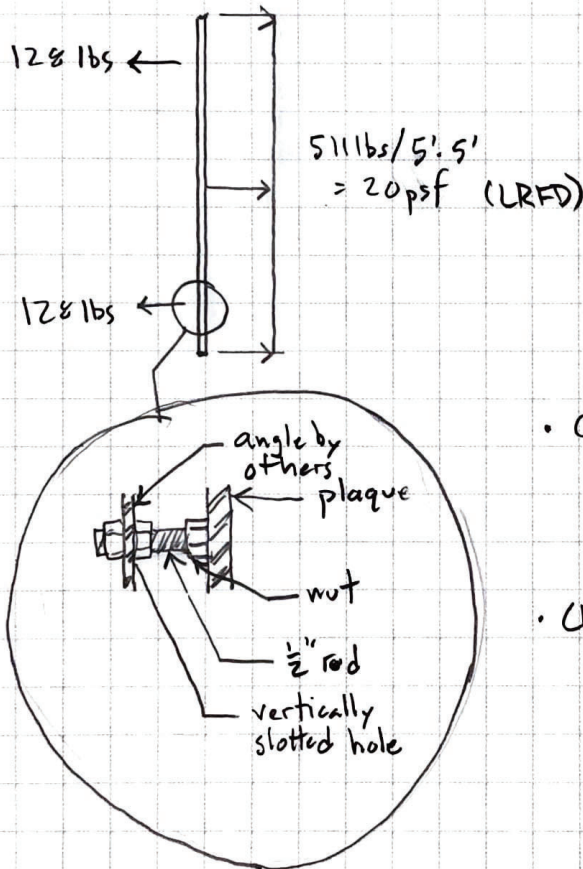 128 lbs
511 lbs/5'.5'
= 20 psf (LRFD)
128 lbs
angle by
others
plaque
nut
1/2" rod
vertically
slotted hole